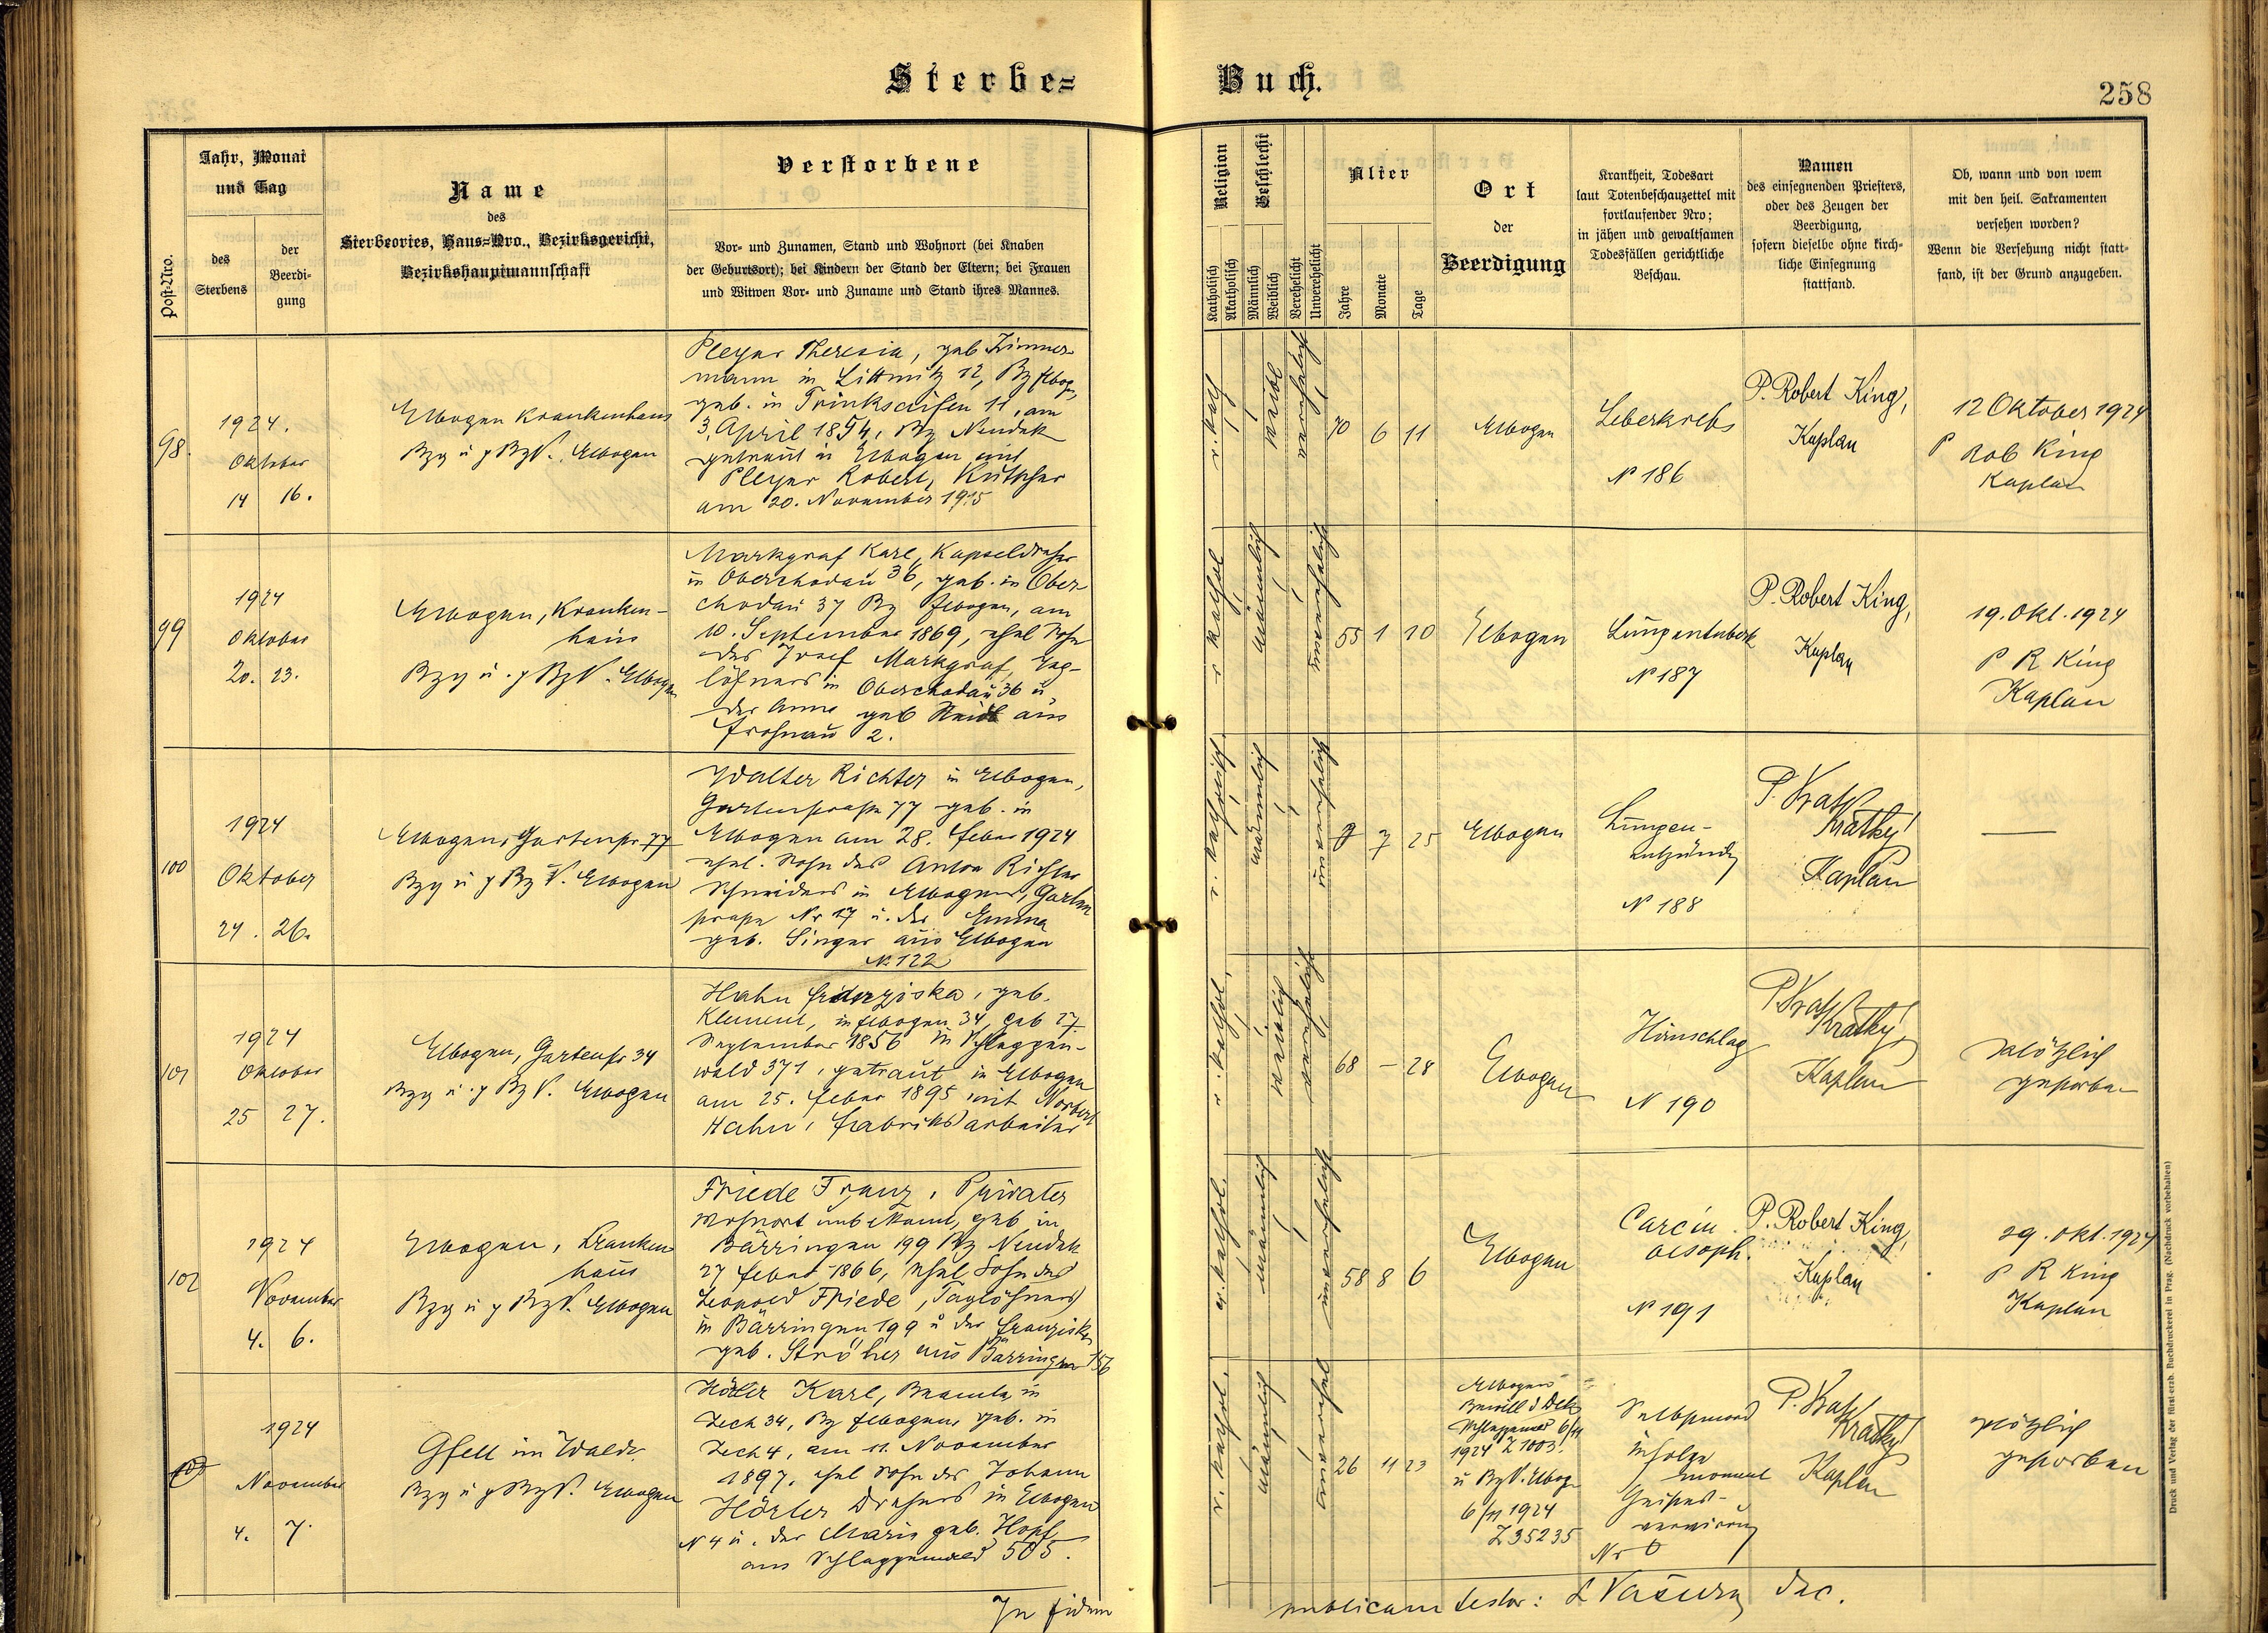 Sterbe=
Buch.
258
Post-Nro.
Jahr, Monat
und Tag
des
Sterbens
der
Beerdi-
gung
Name
des
Sterbeortes, Haus=Nro., Bezirksgericht,
Bezirkshauptmannschaft
Verstorbene
Vor- und Zunamen, Stand und Wohnort (bei Knaben
der Geburtsort); bei Kindern der Stand der Eltern; bei Frauen
und Witwen Vor- und Zuname und Stand ihres Mannes.
Religion
Katholisch
Akatholisch
Geschlecht
Männlich
Weiblich
Verehelicht
Unverehelicht
Alter
Jahre
Monate
Tage
Ort
der
Beerdigung
Krankheit, Todesart
laut Totenbeschauzettel mit
fortlaufender Nro;
in jähen und gewaltsamen
Todesfällen gerichtliche
Beschau.
Namen
des einsegnenden Priesters,
oder des Zeugen der
Beerdigung,
sofern dieselbe ohne kirch-
liche Einsegnung
stattfand.
Ob, wann und von wem
mit den heil. Sakramenten
versehen worden?
Wenn die Versehung nicht statt-
fand, ist der Grund anzugeben.
98.
1924.
Oktober
14 16.
Elbogen Krankenhaus
Bzg u p BzV. Elbogen
Pleyer Theresia, geb Zimmer-
mann in Littmitz 12, Bz Elbogen,
geb. in Trinkseifen 11, am
3. April 1854, Bz Neudek
getraut in Elbogen mit
Pleyer Robert, Kutscher
am 20. November 1915
r. kath
weibl
verehelicht
70 6 11
Elbogen
Leberkrebs
N 186
P. Robert King,
Kaplan
12 Oktober 1924
P Rob King
Kaplan
99
1924
Oktober
20. 23.
Elbogen, Kranken-
haus
Bzg u. p BzV. Elbogen
Markgraf Karl, Kapseldreher
in Oberchodau 36, geb. in Ober-
chodau 37 Bz Elbogen, am
10. September 1869, ehel Sohn
des Josef Markgraf, Tag-
löhners in Oberchodau 36 u
der Anna geb Neidl aus
Frohnau 2.
r kathol
männlich
unverehelicht
55 1 10
Elbogen
Lungentuberk
N 187
P. Robert King,
Kaplan
19. Okt. 1924
P R King
Kaplan
100
1924
Oktober
24. 26.
Elbogen, Gartenstr 77
Bzg u p BzV. Elbogen
Walter Richter in Elbogen,
Gartenstrasse 77 geb. in
Elbogen am 28. Feber 1924
ehel. Sohn des Anton Richter
Schneiders in Elbogen, Garten
strasse Nr 17 u. der Emma
geb. Singer aus Elbogen
N. 122
r. katholisch
männlich
unverehelicht
7 25
Elbogen
Lungen-
entzündg
N 188
P. Krátký
Kaplan
101
1924
Oktober
25 27.
Elbogen, Gartenstr 34
Bzg u. p BzV. Elbogen
Hahn Franziska, geb.
Klement, in Elbogen 34, geb 27.
September 1856 in Schlaggen-
wald 371, getraut in Elbogen
am 25. Feber 1895 mit Norbert
Hahn, Fabriksarbeiter
r. kathol.
weiblich
verehelicht
68 – 28
Elbogen
Hirnschlag
N 190
Krátký
Kaplan
plötzlich
gestorben
102
1924
November
4. 6.
Elbogen, Kranken
haus
Bzg u p BzV. Elbogen
Friede Franz, Privater
Wohnort unbekannt, geb in
Bärringen 199 Bz Neudek
27 Feber 1866, ehel Sohn des
Leopold Friede, Taglöhners
in Bärringen 199 u der Franziska
geb. Ströher aus Bärringen 156
r. kathol.
männlich
unverehelicht
58 8 6
Elbogen
Carcin.
oesoph.
N 191
P. Robert King,
Kaplan
29. Okt. 1924
P R King
Kaplan
103
1924
November
4. 7.
Gfell im Walde.
Bzg u p BzV. Elbogen
Hörler Karl, Beamte in
Zech 34, Bz Elbogen, geb. in
Zech 4, am 11. November
1897, ehel Sohn des Johann
Hörler Drehers in Elbogen
N 4 u. der Marie geb. Hopf
aus Schlaggenwald 505.
r. kathol.
männlich
unverehel
26 11 23
Elbogen
Bewill d Dek
Schlaggenwald 6/11
1924 Z 1003.
u BzV. Elbog
6/11 1924
Z 35235
Selbstmord
infolge
moment
Geistes-
verwirrung
Nr 0
P. Krátký
Kaplan
plötzlich
gestorben
In fidem
publicam testor: L Vašura Dec.
Druck und Verlag der fürst-erzb. Buchdruckerei in Prag. (Nachdruck vorbehalten)